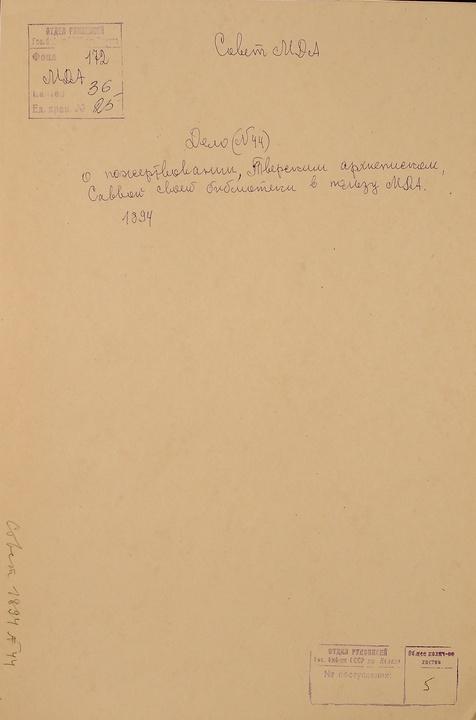 ОТДЕЛ РУКОПИСЕЙ
Фонд 172
МДА
36
Ед. хран. № 25
Совет МДА
Дело (№ 44)
о пожертвовании, Тверским архиепископом,
Саввой своей библиотеки в пользу МДА.
1894
Совет 1894 № 44
ОТДЕЛ РУКОПИСЕЙ
Гос. библ-ки СССР им. Ленина
№ поступления:
Общее колич-во
листов
5